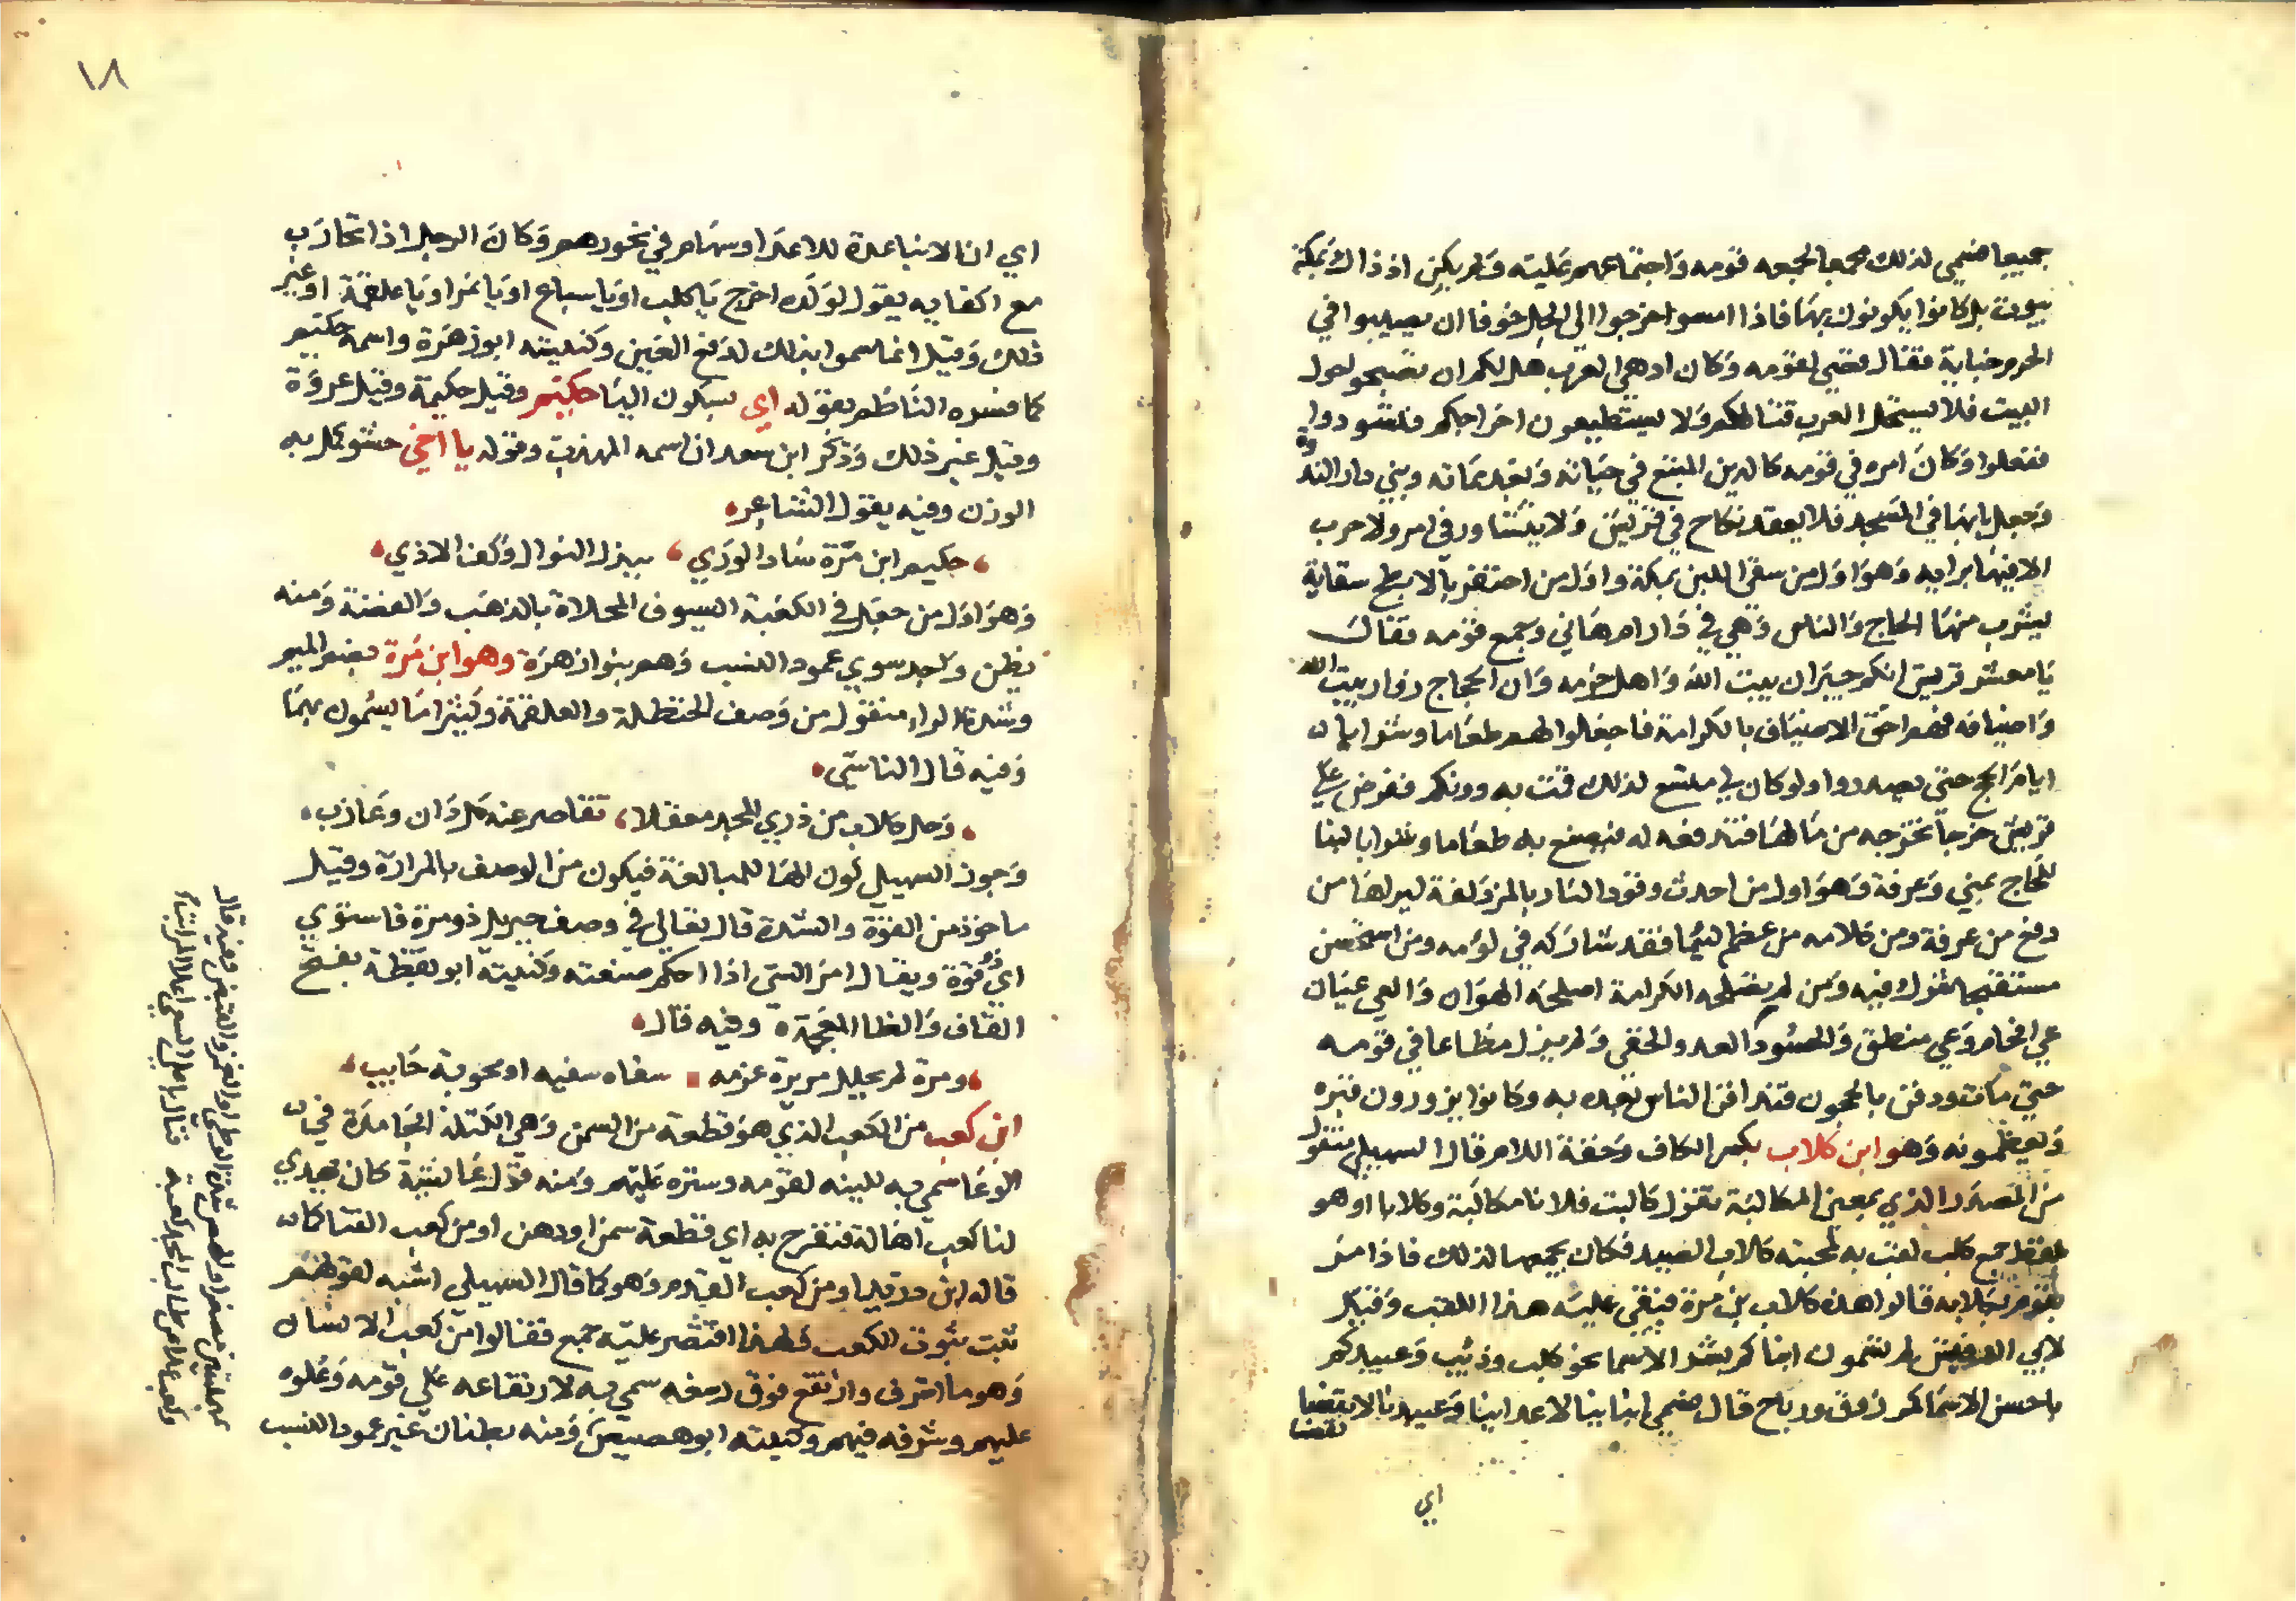 جميعا فسمي لذلك مجمعا لجمعه قومه واجتماعهم عليه ولم يكن اذ ذاك بمكة
بيوت بل كانوا يكونون بها فاذا امسوا خرجوا الى الحل خوفا ان يصيبوا في
الحرم جنابة فقال قصي لقومه وكان ادهي العرب هل لكم ان تصبحوا حول
البيت فلا يستحل العرب قتالكم ولا يستطيعون اخراجكم
ففعلوا وكان امره في قومه كالدين المتبع في حياته وبعد مماته وبني دار الندوة
وجعل بابها في المسجد فلا يعقد نكاح في قريش ولا يتشاور في امر ولا حرب
الا فيها برايه وهو اول من سقي اللبن بمكة واول من احتفر بالابطح سقاية
يشرب منها الحاج والناس وهي في دار ام هاني وجمع قومه فقال
يا معشر قريش انكم جيران بيت الله واهل حرمه وان الحجاج زوار بيت الله
واضيافه فهم احق الاضياف بالكرامة فاجعلوا لهم طعاما وشرابا
ايام الحج حتي يصدروا ولو كان لي متسع لذلك قمت به دونكم ففرض علي
قريش خرجا تخرجه من مالها فتدفعه له فيصنع به طعاما وشرابا لبنا
للحاج بمني وعرفة وهو اول من احدث وقود النار بالمزدلفة ليراها من
دفع من عرفة ومن كلامه من عظم لئيما فقد شاركه في لومه ومن استحسن
مستقبحا شركه فيه ومن لم تصلحه الكرامة اصلحه الهوان والعي عيان
عي افحام وعي منطق والحسود العدو الخفي ولم يزل مطاعا في قومه
حتي مات ودفن بالحجون فتدافن الناس بعده به وكانوا يزورون قبره
ويعظمونه وهو ابن كلاب بكسر الكاف وخفة اللام قال السهيلي منقول
من المصدر الذي بمعني المكالبة تقول كالبت فلانا مكالبة وكلابا او هو
لفظ جمع كلب لقب به لمحبته كلاب الصيد فكان يجمعها لذلك فاذا مر
بقوم بكلابه قالوا هذه كلاب بن مرة فبقي عليه هذا اللقب وقيل
لابي الدقيش لم تسمون ابناكم بشر الاسما نحو كلب وذئب وعبيدكم
باحسن الاسما كمرزوق ورباح قال نسمي ابناينا لاعداينا وعبيدنا لانفسنا
اي
١٨
اي ان الابنا عدة للاعدا وسهام في نحورهم وكان الرجل اذا تحارب
مع اكفايه يقول لولده اخرج يا كلب او يا سباع او يا نمر او يا علقمة او غير
ذلك وقيل انما سموا بذلك لدفع العين وكنيته ابو زهرة واسمه حكيم
كما فسره الناظم بقوله اي بسكون اليا حكيم وقيل حكيمة وقيل عروة
وقيل غير ذلك وذكر ابن سعد ان اسمه المهذب وقوله يا اخي حشو كمل به
الوزن وفيه يقول الشاعر
حكيم ابن مرة ساد الوري ببذل النوال وكف الاذي
وهو اول من جعل في الكعبة السيوف المحلاة بالذهب والفضة ومنه
بطن واحد سوي عمود النسب وهم بنوا زهرة وهو ابن مرة بضم الميم
وشدة الراء منقول من وصف الحنظلة والعلقمة وكثيرا ما يسمون بهما
وفيه قال الناشي
وحل كلاب من ذري المجد معقلا تقاصر عنه كل دان وعازب
وجوز السهيلي كون الها للمبالغة فيكون من الوصف بالمرارة وقيل
ماخوذ من القوة والشدة قال تعالي في وصف جبريل ذو مرة فاستوي
اي ذو قوة ويقال امر الشي اذا احكم صنعته وكنيته ابو يقظة بفتح
القاف والظا المعجمة وفيه قال
ومرة لم يحلل مريرة عزمه سفاه سفيه او محوبة حايب
ابن كعب من الكعب الذي هو قطعة من السمن وهي الكتلة الجامدة في
الوعا سمي به للينه لقومه وستره عليهم ومنه قول عائشة كان يهدي
لنا كعب اهالة فنفرح به اي قطعة سمن او دهن او من كعب القناة كما
قاله ابن دريد او من كعب القدم وهو كما قال السهيلي اشبه لقولهم
ثبت ثبوت الكعب فلهذا اقتصر عليه جمع فقالوا من كعب الانسان
وهو ما اشرف وارتفع فوق رسغه سمي به لارتفاعه علي قومه وعلوه
عليهم وشرفه فيهم وكنيته ابو هصيص ومنه بطنان غير عمود النسب